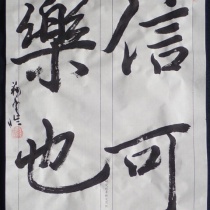 信可
樂也